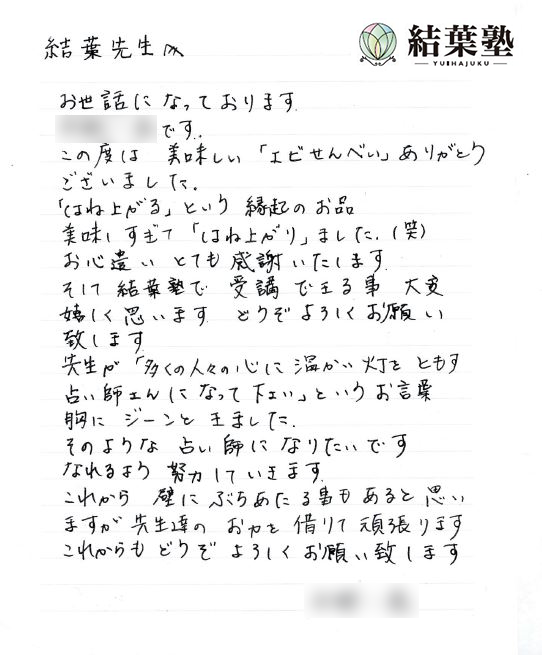 結葉塾
YUIHAJUKU
結葉先生へ
お世話になっております
です。
この度は 美味しい「エビせんべい」ありがとう
ございました。
「はね上がる」という 縁起のお品
美味しすぎて「はね上がり」ました。(笑)
お心遣い とても 感謝いたします
そして 結葉塾で 受講 できる事 大変
嬉しく思います どうぞ よろしく お願い
致します
先生が「多くの人々の心に 温かい 灯を ともす
占い師さんに なって下さい」という お言葉
胸に ジーンと きました。
そのような 占い師に なりたいです
なれるよう 努力していきます
これから 壁に ぶちあたる事も あると 思い
ますが 先生達の お力を 借りて 頑張ります
これからも どうぞ よろしく お願い致します